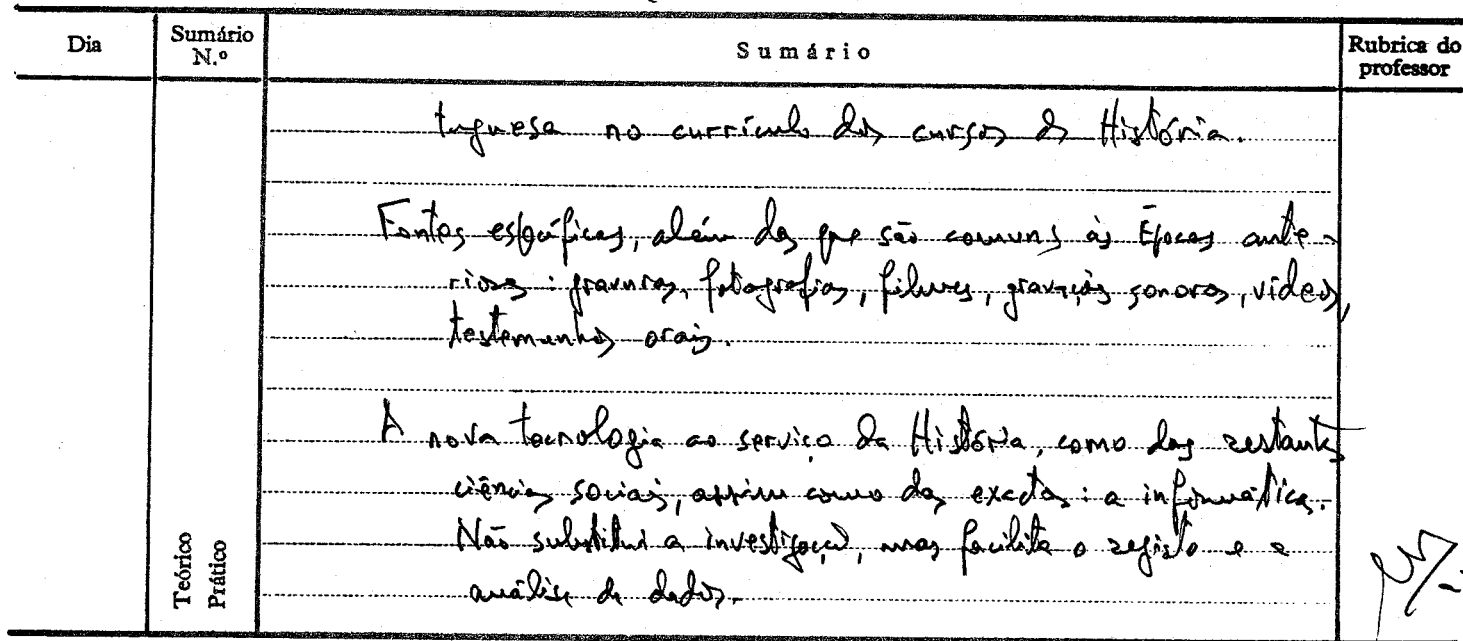 Dia
Sumário N.º
Sumário
Rubrica do professor
tuguesa no currículo dos cursos de História.
Fontes específicas, além das que são comuns às Épocas ante-
riores: gravuras, fotografias, filmes, gravações sonoras, vídeos,
testemunhos orais.
A nova tecnologia ao serviço da História, como das restantes
ciências sociais, assim como das exactas: a informática.
Não substitui a investigação, mas facilita o registo e a
análise de dados.
Teórico
Prático